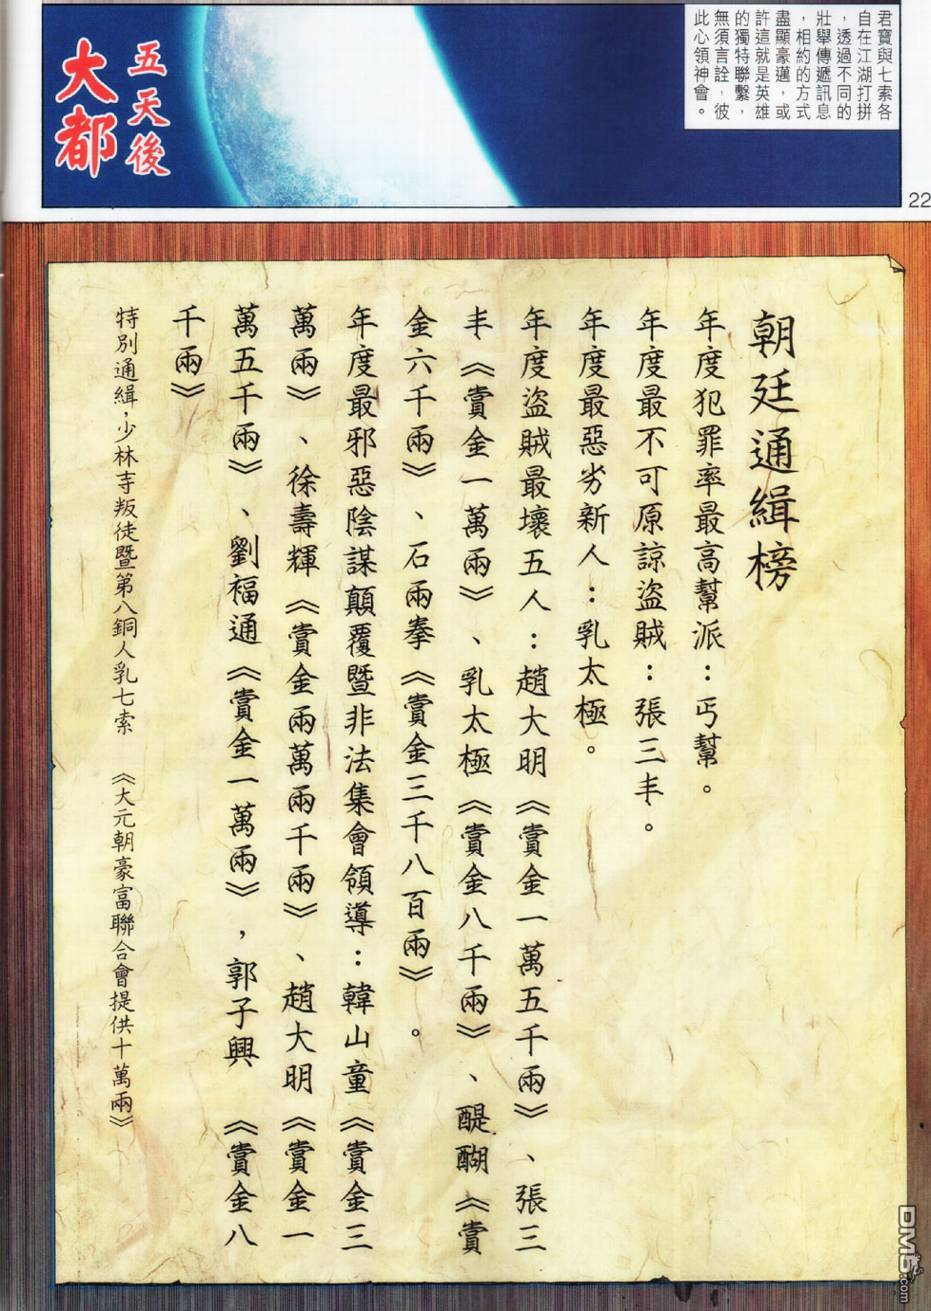 君寶與七索各
自在江湖打拼
，透過不同的
壯舉傳遞訊息
，相約的方式
盡顯豪邁，或
許這就是英雄
的獨特聯繫，
無須言詮，彼
此心領神會。
五天後
大都
22
朝廷通緝榜
年度犯罪率最高幫派：丐幫。
年度最不可原諒盜賊：張三丰。
年度最惡劣新人：乳太極。
年度盜賊最壞五人：趙大明《賞金一萬五千兩》、張三
丰《賞金一萬兩》、乳太極《賞金八千兩》、醍醐《賞
金六千兩》、石兩拳《賞金三千八百兩》。
年度最邪惡陰謀顛覆暨非法集會領導：韓山童《賞金三
萬兩》、徐壽輝《賞金兩萬兩千兩》、趙大明《賞金一
萬五千兩》、劉福通《賞金一萬兩》，郭子興《賞金八
千兩》
特別通緝，少林寺叛徒暨第八銅人乳七索　《大元朝豪富聯合會提供十萬兩》
DM5.com